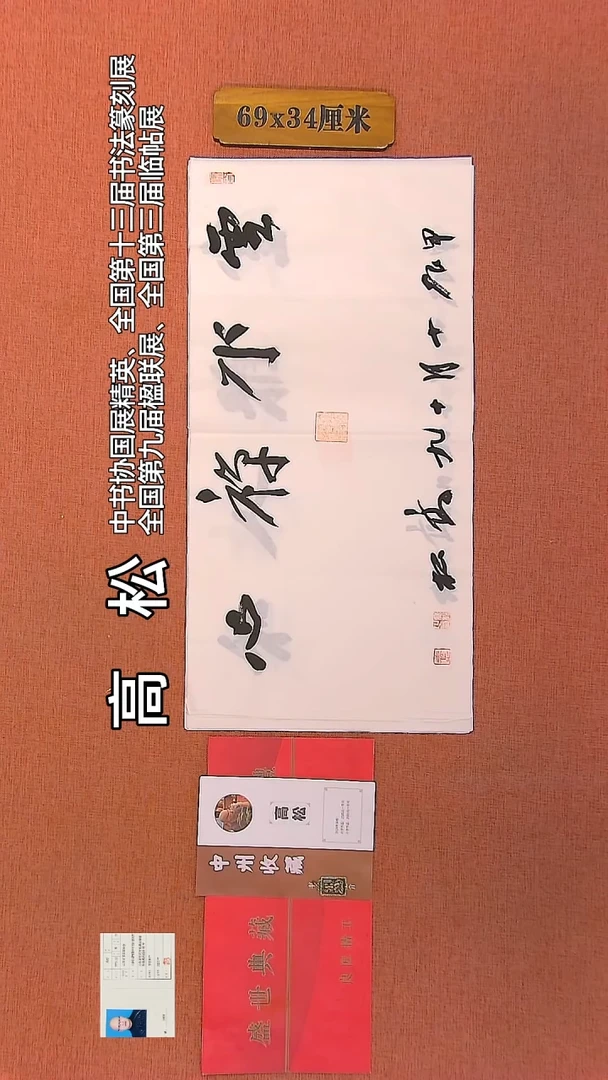 69x34厘米
高 松
中书协国展精英、全国第十三届书法篆刻展
全国第九届楹联展、全国第三届临帖展
雲水禅心
甲辰十月十九高松
高松
中州收藏
盛世典藏